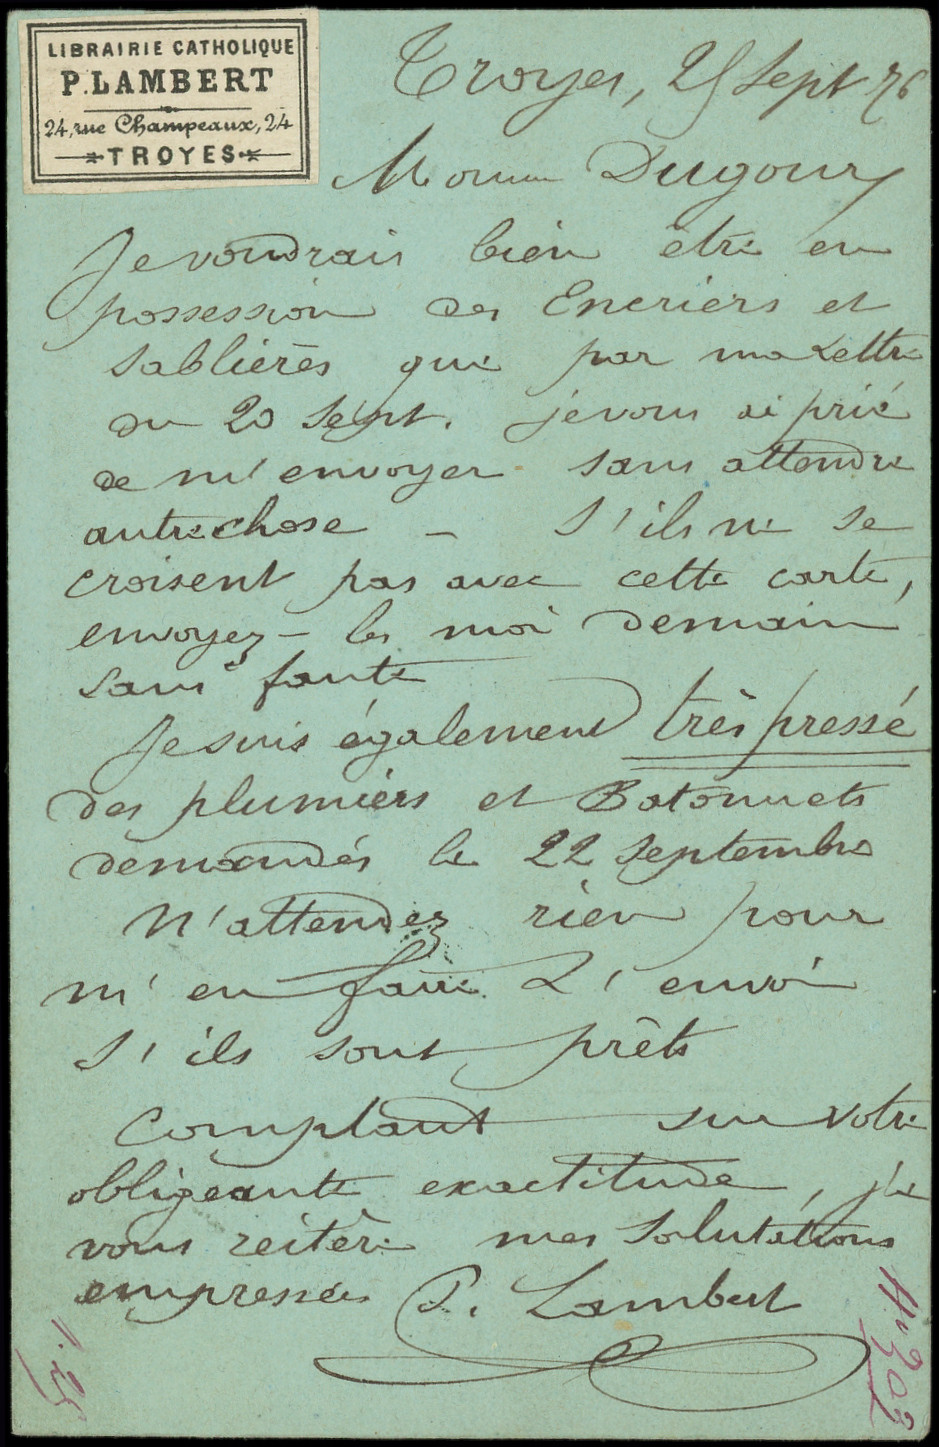 LIBRAIRIE CATHOLIQUE
P. LAMBERT
24, rue Champeaux, 24
TROYES
Troyes, 25 Sept 76
Monsieur Dugour
Je voudrais bien être en
possession des Encriers et
Sablières que par ma Lettre
du 20 Sept. je vous ai prié
de m'envoyer sans attendre
autre chose – S'ils ne se
croisent pas avec cette carte,
envoyez-les moi demain
sans faute
Je suis également très pressé
des plumiers et Batonnets
demandés le 22 Septembre
N'attendez rien pour
m'en faire L'envoi
S'ils sont prêts
Comptant sur votre
obligeante exactitude, je
vous reitère mes Salutations
empressées P. Lambert